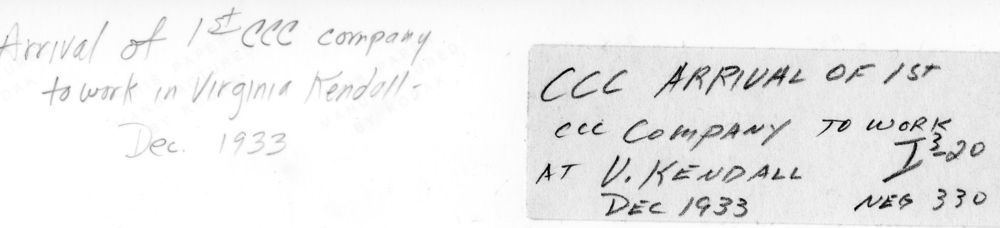 Arrival of 1st CCC company
to work in Virginia Kendall-
Dec. 1933
CCC ARRIVAL OF 1ST
CCC COMPANY TO WORK
AT V. KENDALL I3-20
DEC 1933 NEG 330